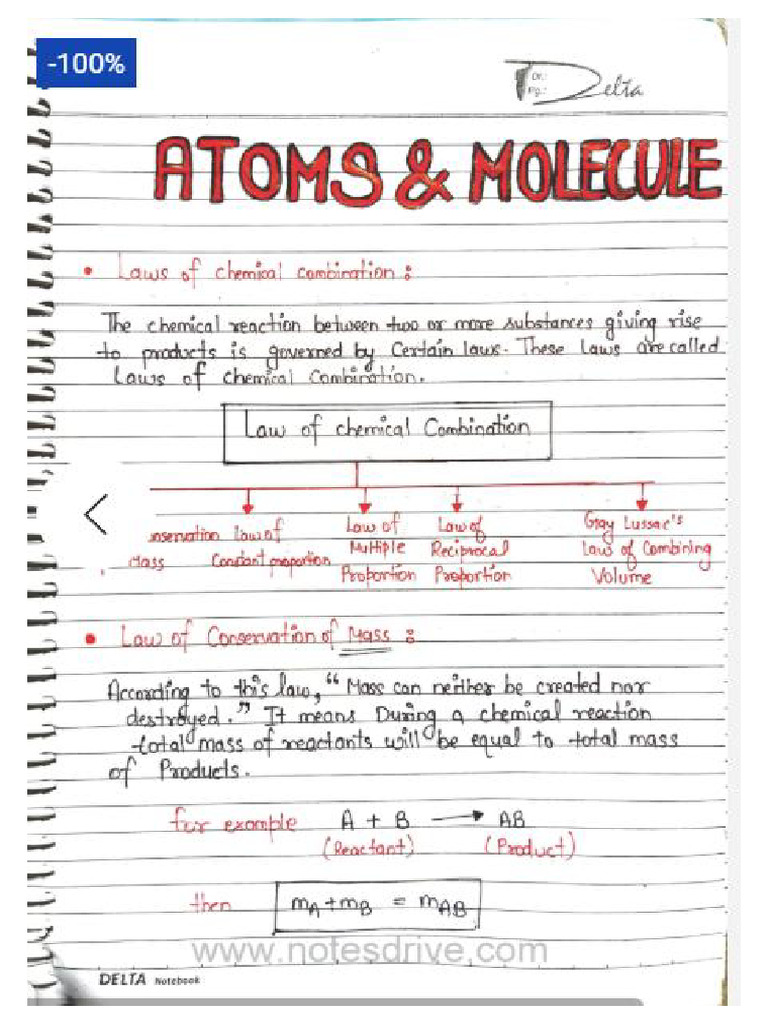 -100%
Dt.:
Pg.:
Delta
ATOMS & MOLECULE
• Laws of chemical combination :
The chemical reaction between two or more substances giving rise
to products is governed by Certain laws. These Laws are called
Laws of Chemical Combination.
Law of chemical Combination
onservation Law of Law of Law of Gay Lussac's
Mass Constant proportion Multiple Reciprocal Law of Combining
Proportion Proportion Volume
• Law of Conservation of Mass :
According to this law, “ Mass can neither be created nor
destroyed.” It means During a chemical reaction
total mass of reactants will be equal to total mass
of Products.
for example A + B → AB
(Reactant) (Product)
then mA+mB = mAB
www.notesdrive.com
DELTA Notebook